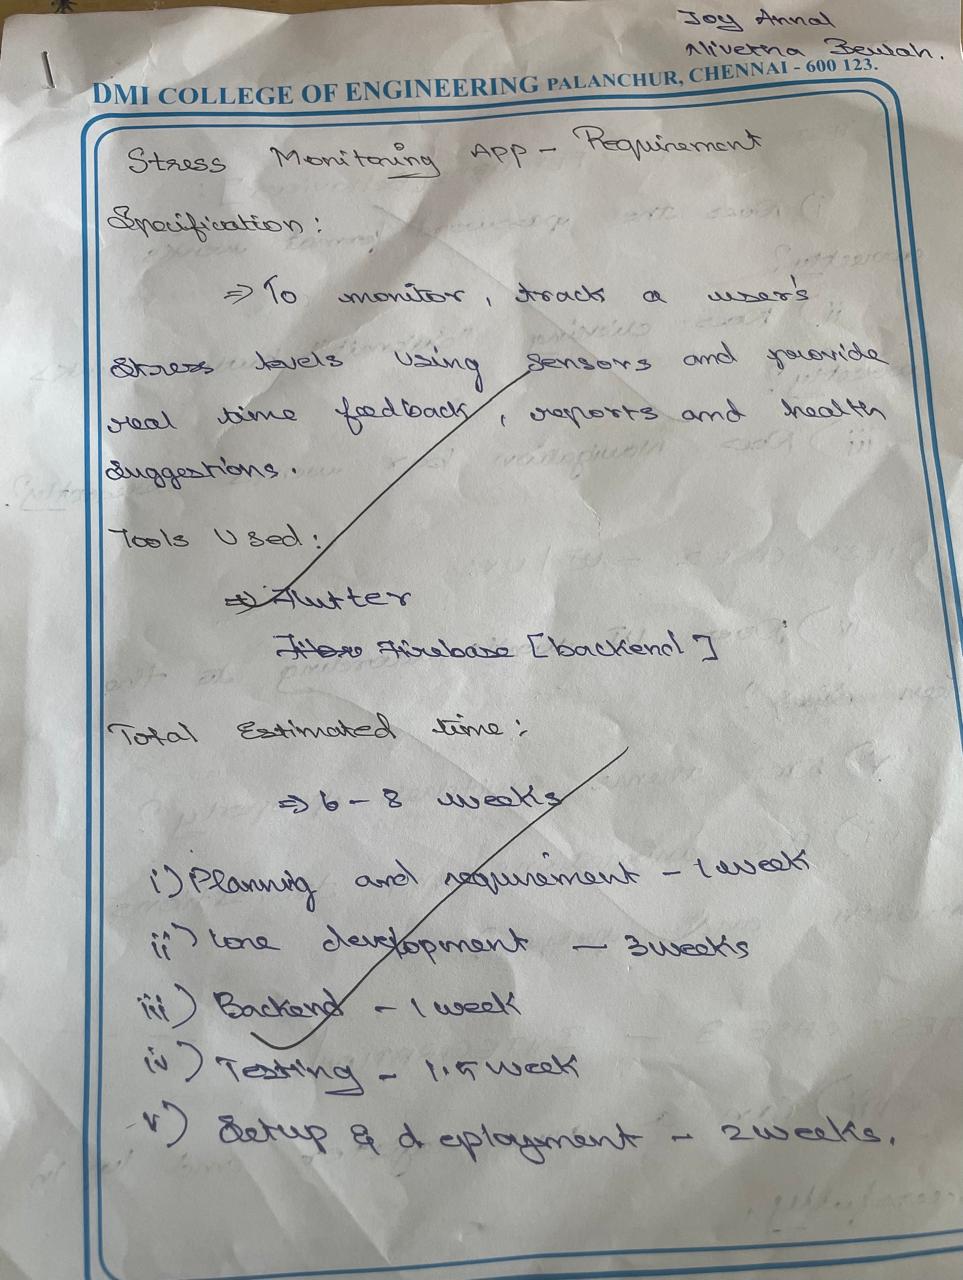 Joy Annal
Nivetha Beulah.
1
DMI COLLEGE OF ENGINEERING PALANCHUR, CHENNAI - 600 123.
Stress Monitoring App - Requirement
Specification :
⇒ To monitor, track a user's
Stress levels using sensors and provide
real time feedback, reports and health
suggestions.
Tools Used :
⇒ Flutter
Firebase [backend]
Total Estimated time :
⇒ 6 - 8 weeks
i) Planning and requirement - 1 week
ii) Core development - 3 weeks
iii) Backend - 1 week
iv) Testing - 1.5 week
v) Setup & deployment - 2 weeks.